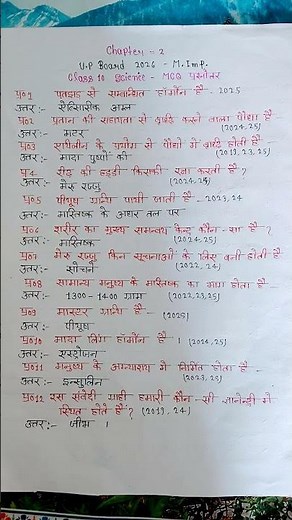 Chapter - 2
U.P Board 2026 - M.Imp.
Class 10 Science - MCQ प्रश्नोत्तर
प्र01 पतझड़ से सम्बन्धित हॉर्मोन है - 2025
उत्तर:- ऐब्सिसिक अम्ल
प्र02 प्रतान की सहायता से वृद्धि करने वाला पौधा है -
उत्तर:- मटर (2024,25)
प्र03 साइटोकाइनिन के प्रयोग से पौधों में वृद्धि होती है -
उत्तर:- मादा पुष्पों की (2019,23,25)
प्र4 रीढ़ की हड्डी किसकी रक्षा करती है ?
उत्तर:- मेरु रज्जु (2024,25)
प्र05 पीयूष ग्रंथि पायी जाती है - 2023,24
उत्तर:- मस्तिष्क के अधर तल पर
प्र06 शरीर का मुख्य समन्वय केन्द्र कौन-सा है ?
उत्तर:- मस्तिष्क (2024,25)
प्र07 मेरु रज्जु किन सूचनाओं के लिए बनी होती है
उत्तर:- सोचने (2022,24)
प्र08 सामान्य मनुष्य के मस्तिष्क का भार होता है -
उत्तर:- 1300 - 1400 ग्राम (2022,23,25)
प्र09 मास्टर ग्रंथि है - (2025)
उत्तर:- पीयूष
प्र010 मादा लिंग हॉर्मोन है । (2024,25)
उत्तर:- एस्ट्रोजन
प्र011 मनुष्य के अग्न्याशय में निर्मित होता है -
उत्तर:- इन्सुलिन (2023,25)
प्र012 रस संवेदी ग्राही हमारी कौन-सी ज्ञानेन्द्री में
स्थित होते हैं ? (2019,24)
उत्तर:- जीभ ।